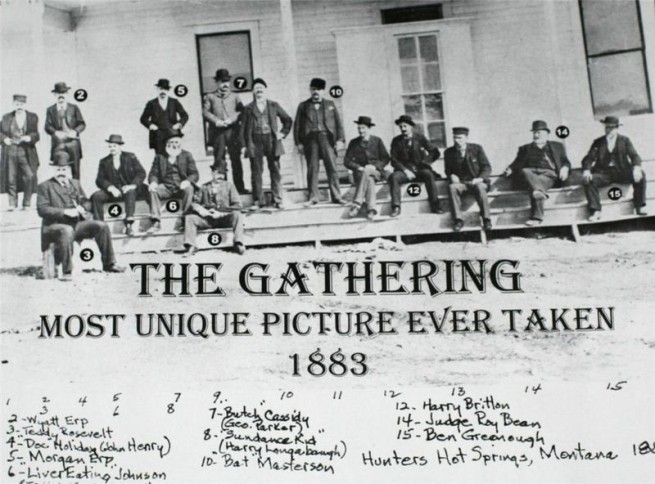 2
5
7
10
14
4
6
12
15
8
3
THE GATHERING
MOST UNIQUE PICTURE EVER TAKEN
1883
1 2 4 5 7 9 10 11 12 13 14 15
3 6 8
2-Wyatt Erp
3-Teddy Rosevelt
4-"Doc" Holiday (John Henry)
5-Morgan Erp
6-Liver Eating Johnson
7-Butch Cassidy
(Geo. Parker)
8-"Sundance Kid"
(Harry Longabaugh)
10-Bat Masterson
12-Harry Britton
14-Judge Roy Bean
15-Ben Greenough
Hunters Hot Springs, Montana